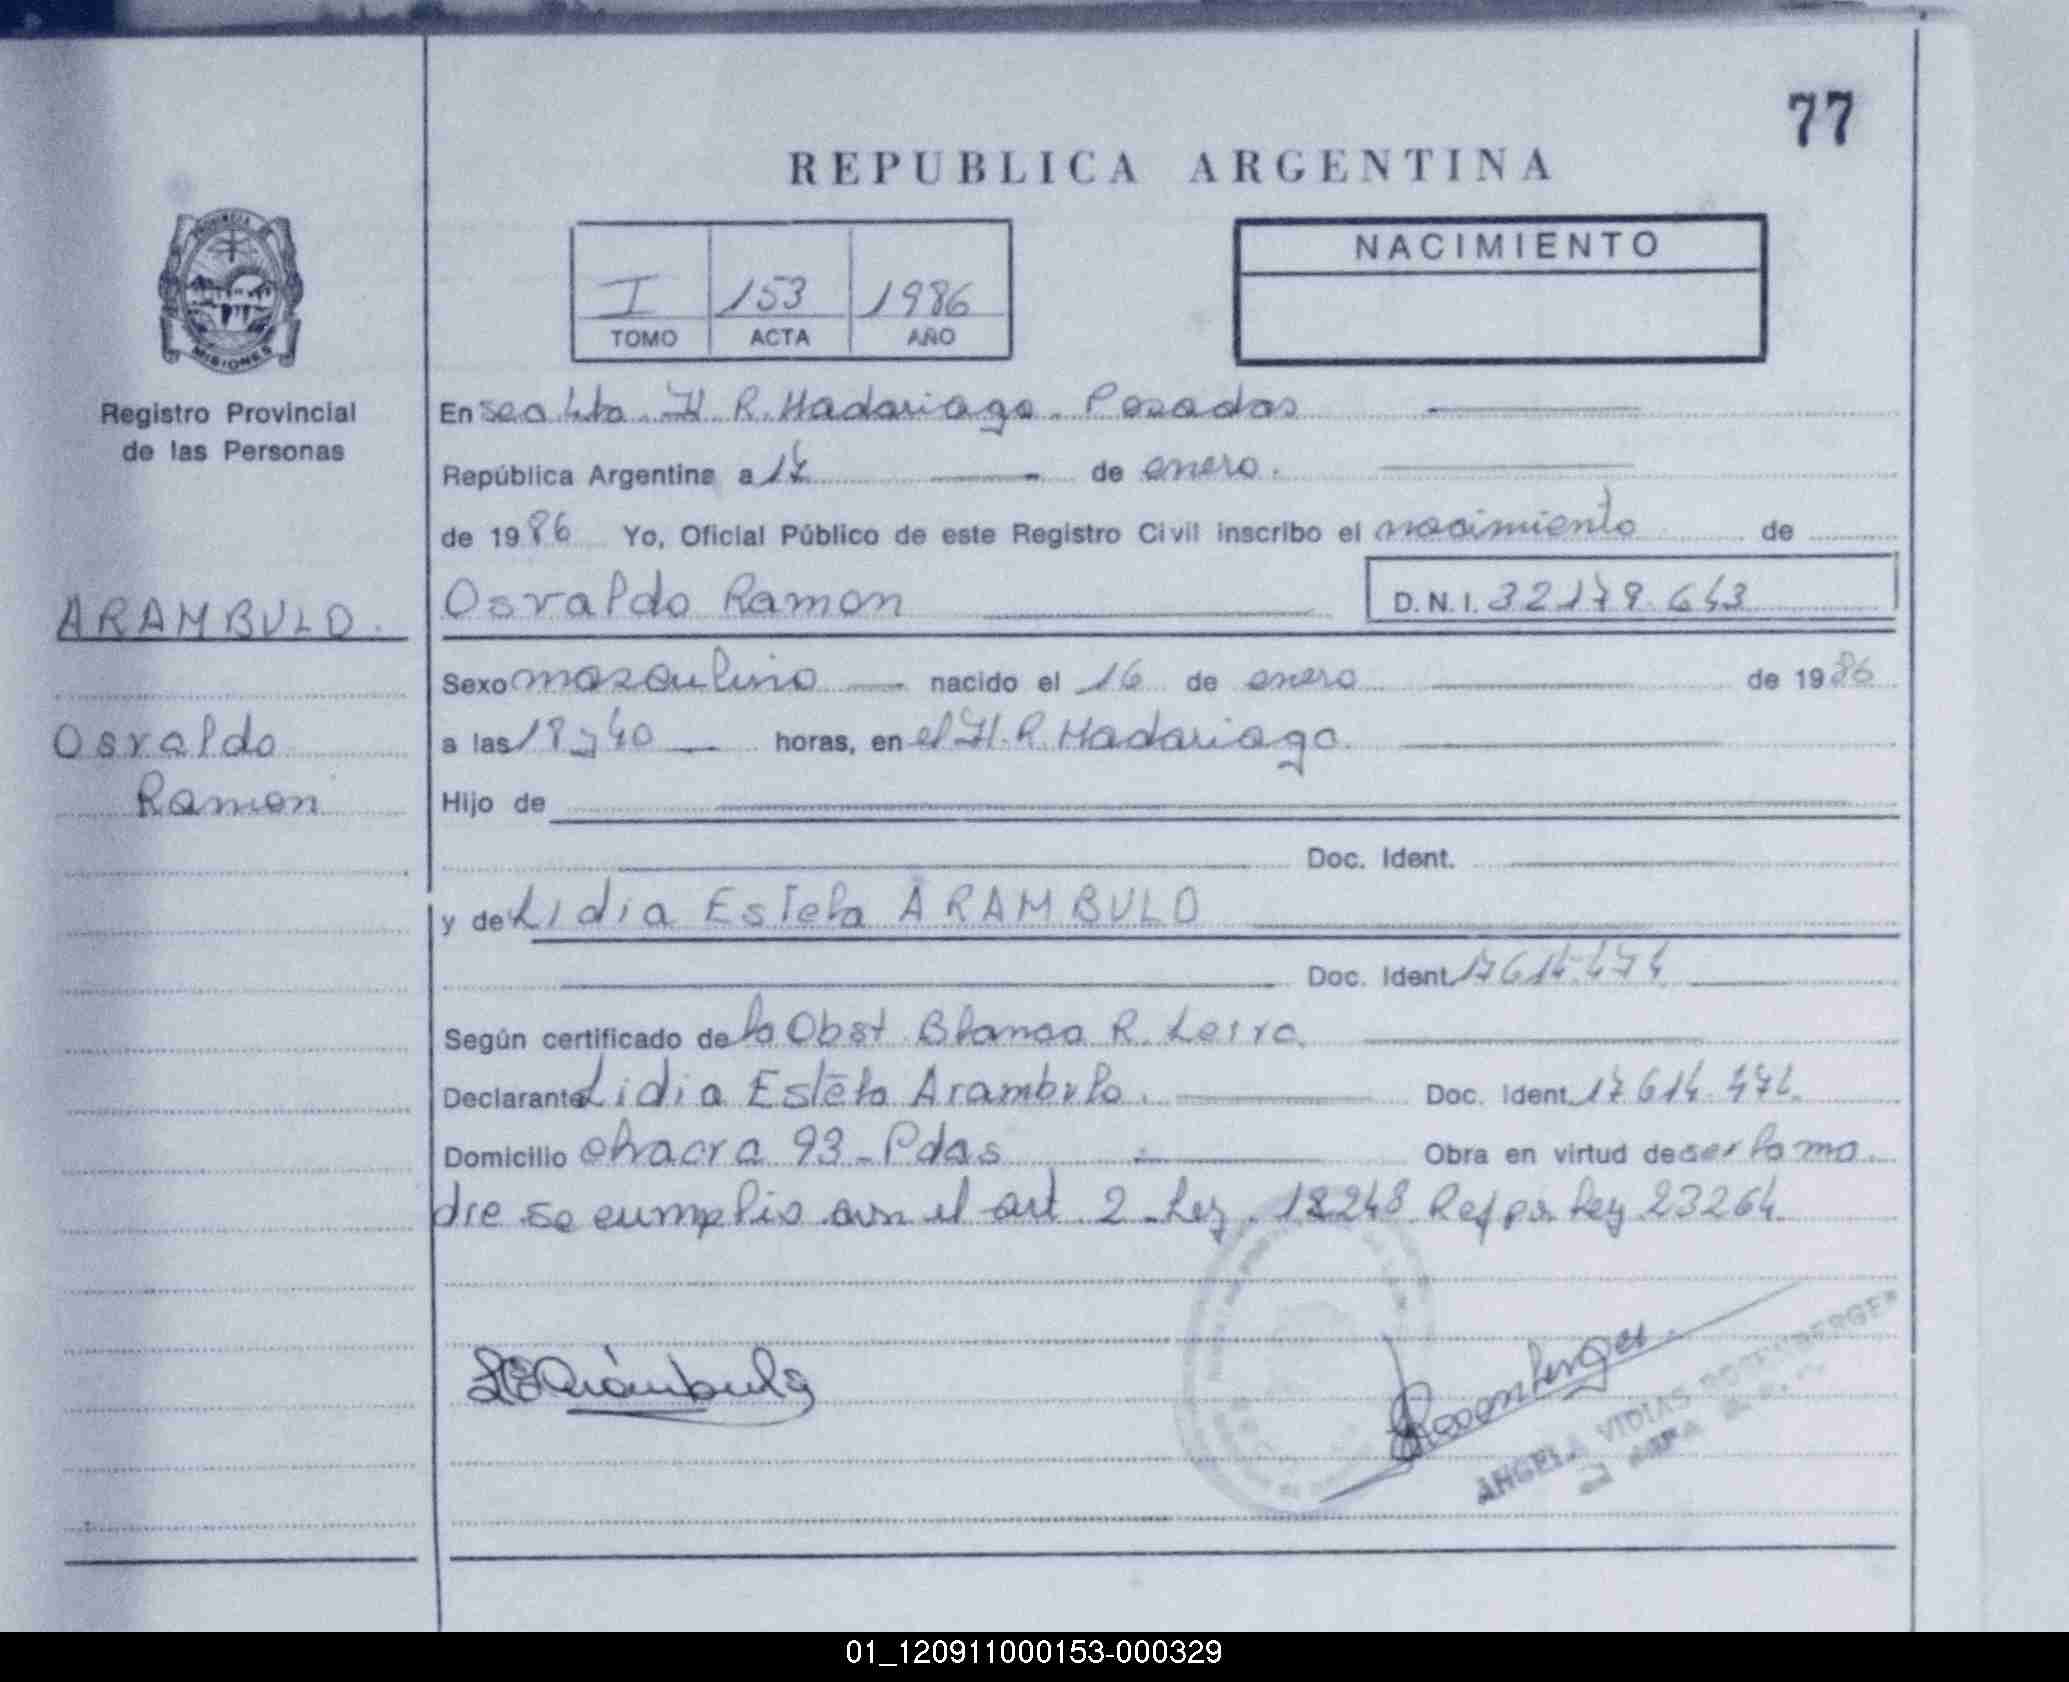 77
REPUBLICA ARGENTINA
PROVINCIA DE
MISIONES
Registro Provincial
de las Personas
I 153 1986
TOMO ACTA AÑO
NACIMIENTO
En H R. Madariaga. Posadas
República Argentina a 17 de enero.
de 1986 Yo, Oficial Público de este Registro Civil inscribo el nacimiento de
ARAMBULO.
Osvaldo Ramon D.N.I. 32179.643
Sexo masculino nacido el 16 de enero de 1986
Osvaldo
a las 18 y 40 horas, en el H. R. Madariaga.
Ramon
Hijo de
Doc. Ident.
y de Lidia Estela ARAMBULO
Doc. Ident. 17614.474
Según certificado de la Obst Blanca R. Leiva.
Declarante Lidia Estela Arambulo. Doc. Ident. 17.614.474.
Domicilio chacra 93 - Pdas Obra en virtud de ser la ma
dre se cumplio con el art. 2 - Ley. 18248 Ref por Ley 23264.
L E Arambulo
Rosenberger
ANGELA VIDIAS ROSENBERGER
01_120911000153-000329